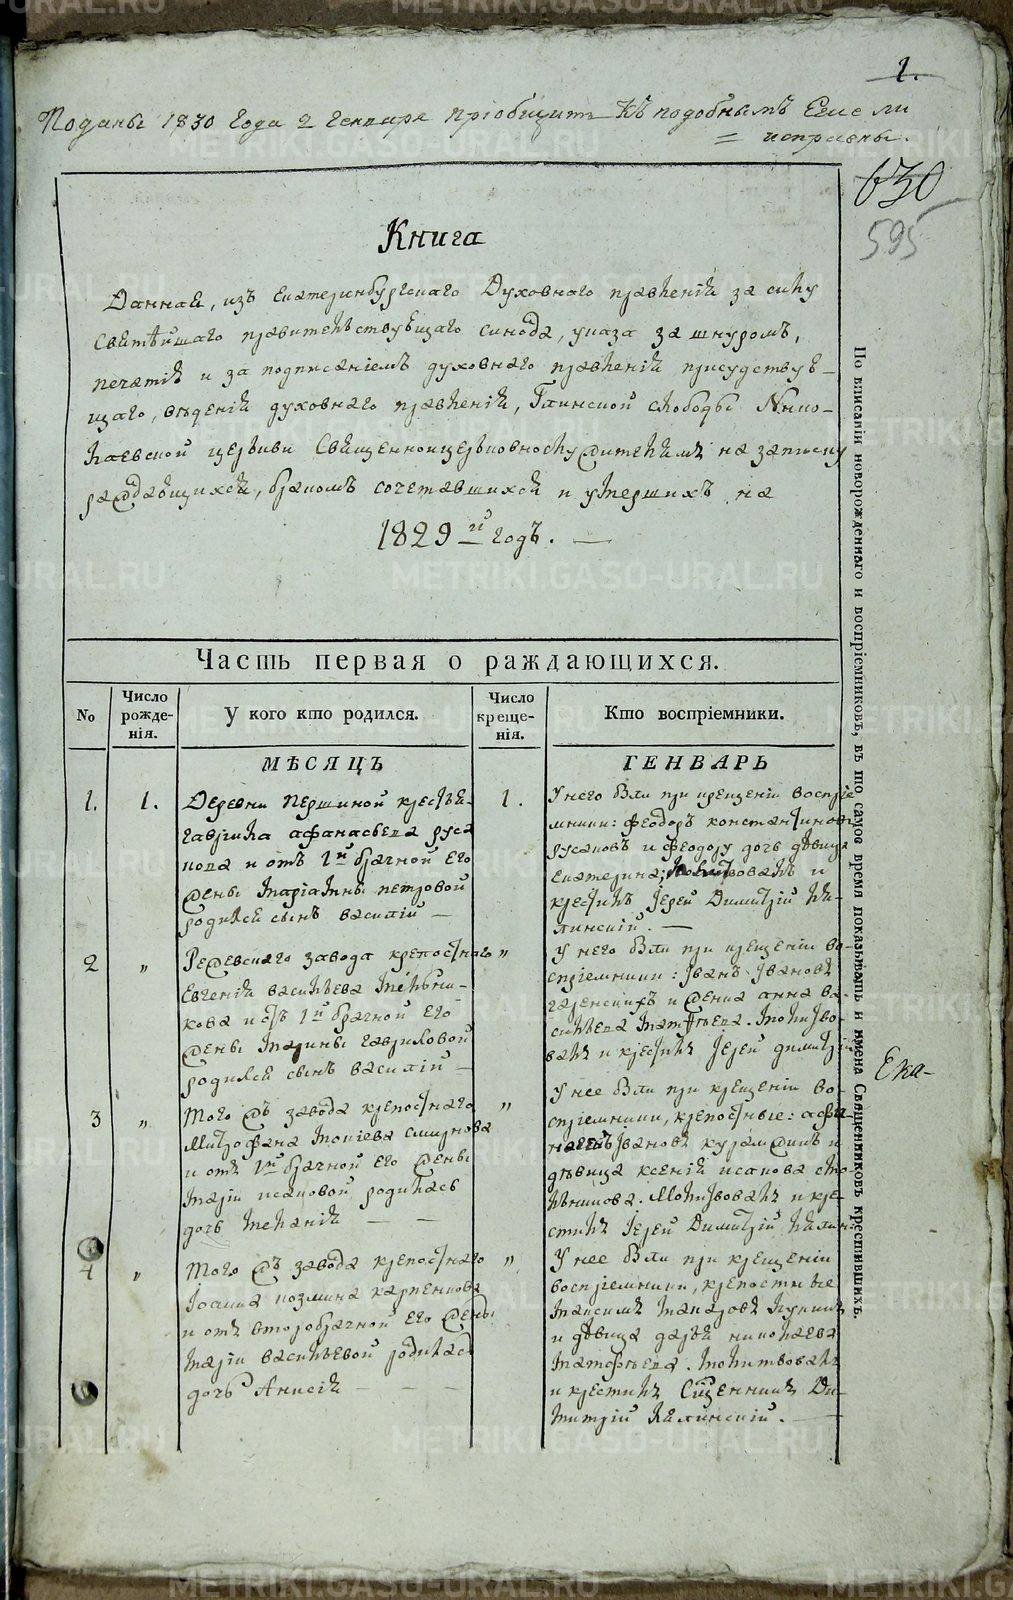 1.
Поданы 1830 года 2 Генваря пріобщить къ подобнымъ Есть ли
= исправны.
630
595
Книга
Данная, изъ Екатеринбургскаго Духовнаго правленія за силу
Святѣйшаго правительствующаго синода, указа за шнуромъ,
печатію и за подписаніемъ духовнаго правленія присудствую-
щаго, вѣденія духовнаго правленія, Глинской слободы Нико-
лаевской церкви Священноцерковнослужителямъ на записку
раждающихся, бракомъ сочетавшихся и умершихъ на
1829 й годъ. —
Часть первая о раждающихся.
No
Число рожде-нія.
У кого кто родился.
Число креще-нія.
Кто воспріемники.
МѢСЯЦЪ
ГЕНВАРЬ
1.
1.
Деревни Першиной крестья-
Гаврила афанасьева руса
нова и отъ 1й брачной Его
жены Маріамны петровой
родился сынъ василій —
1.
У него были при крещеніи воспріе
мники: Феодоръ константиновъ
русановъ и Феодору дочь дѣвица
Екатерина; Молитвовалъ и
крестилъ Іерей Димитрій Ки-
линскій. —
2
„
Режевскаго завода крепостнаго
Евгенія васильева Мельни-
кова и отъ 1й брачной Его
жены Марины гавриловой
родился сынъ василій —
„
У него были при крещеніи во-
спріемники: Іванъ Івановъ
и жена анна ва-
сильева Матфѣева. Молитво-
валъ и крестилъ Іерей димитрій
3
„
Того жъ завода крепостнаго
Митрофана Мокіева смирнова
и отъ 1й брачной Его жены
Маріи исаковой родилась
дочь Меланія — —
„
У нее были при крещеніи во-
спріемники, крепостные: афа-
насей Івановъ и
дѣвица ксенія исакова
Молитвовалъ и кре-
стилъ Іерей Димитрій Килин:
4
„
Того жъ завода крепостнаго
Іоанна козмина карпенкова
и отъ второбрачной Его жены
Маріи васильевой родилась
дочь Анисія — — —
„
У нее были при крещеніи
воспріемники, крепостные
Максимъ Макаровъ
и дѣвица дарья николаева
Матфѣева. Молитвовалъ
и крестилъ Сщенникъ Ди-
митрій Килинскій. —
По вписаніи новорожденнаго и воспріемниковъ, въ то самое время показывать и имена Священниковъ крестившихъ.
Ека-
METRIKI.GASO-URAL.RU